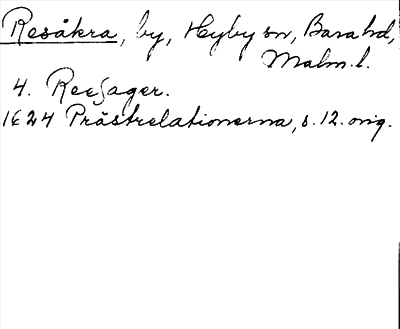 Resåkra, by, Hyby sn, Bara hd,
Malm. l.
4. Reesager.
1624 Prästrelationerna, s. 12. orig.